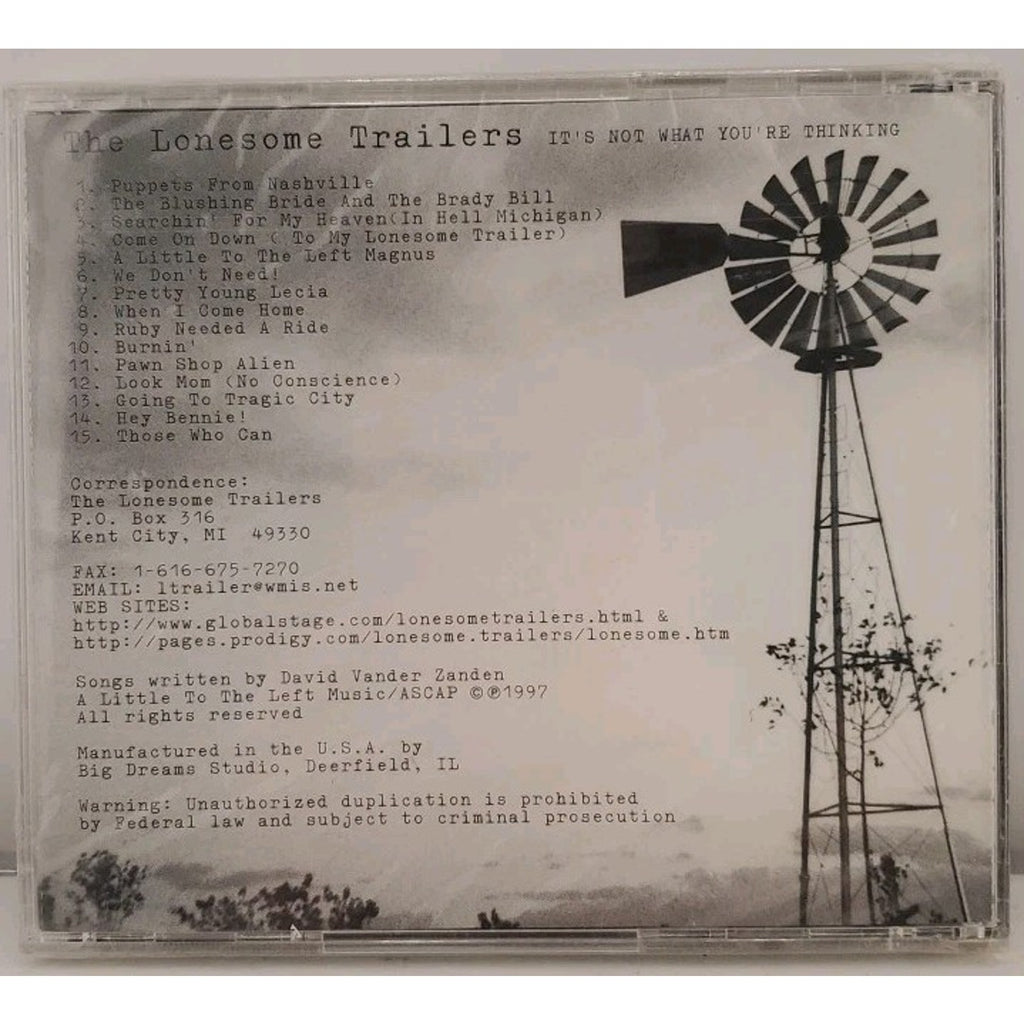 The Lonesome Trailers IT'S NOT WHAT YOU'RE THINKING
1. Puppets From Nashville
2. The Blushing Bride And The Brady Bill
3. Searchin' For My Heaven(In Hell Michigan)
4. Come On Down ( To My Lonesome Trailer)
5. A Little To The Left Magnus
6. We Don't Need!
7. Pretty Young Lecia
8. When I Come Home
9. Ruby Needed A Ride
10. Burnin'
11. Pawn Shop Alien
12. Look Mom (No Conscience)
13. Going To Tragic City
14. Hey Bennie!
15. Those Who Can
Correspondence:
The Lonesome Trailers
P.O. Box 316
Kent City, MI 49330
FAX: 1-616-675-7270
EMAIL: ltrailer@wmis.net
WEB SITES:
http://www.globalstage.com/lonesometrailers.html &
http://pages.prodigy.com/lonesome.trailers/lonesome.htm
Songs written by David Vander Zanden
A Little To The Left Music/ASCAP ©℗1997
All rights reserved
Manufactured in the U.S.A. by
Big Dreams Studio, Deerfield, IL
Warning: Unauthorized duplication is prohibited
by Federal law and subject to criminal prosecution